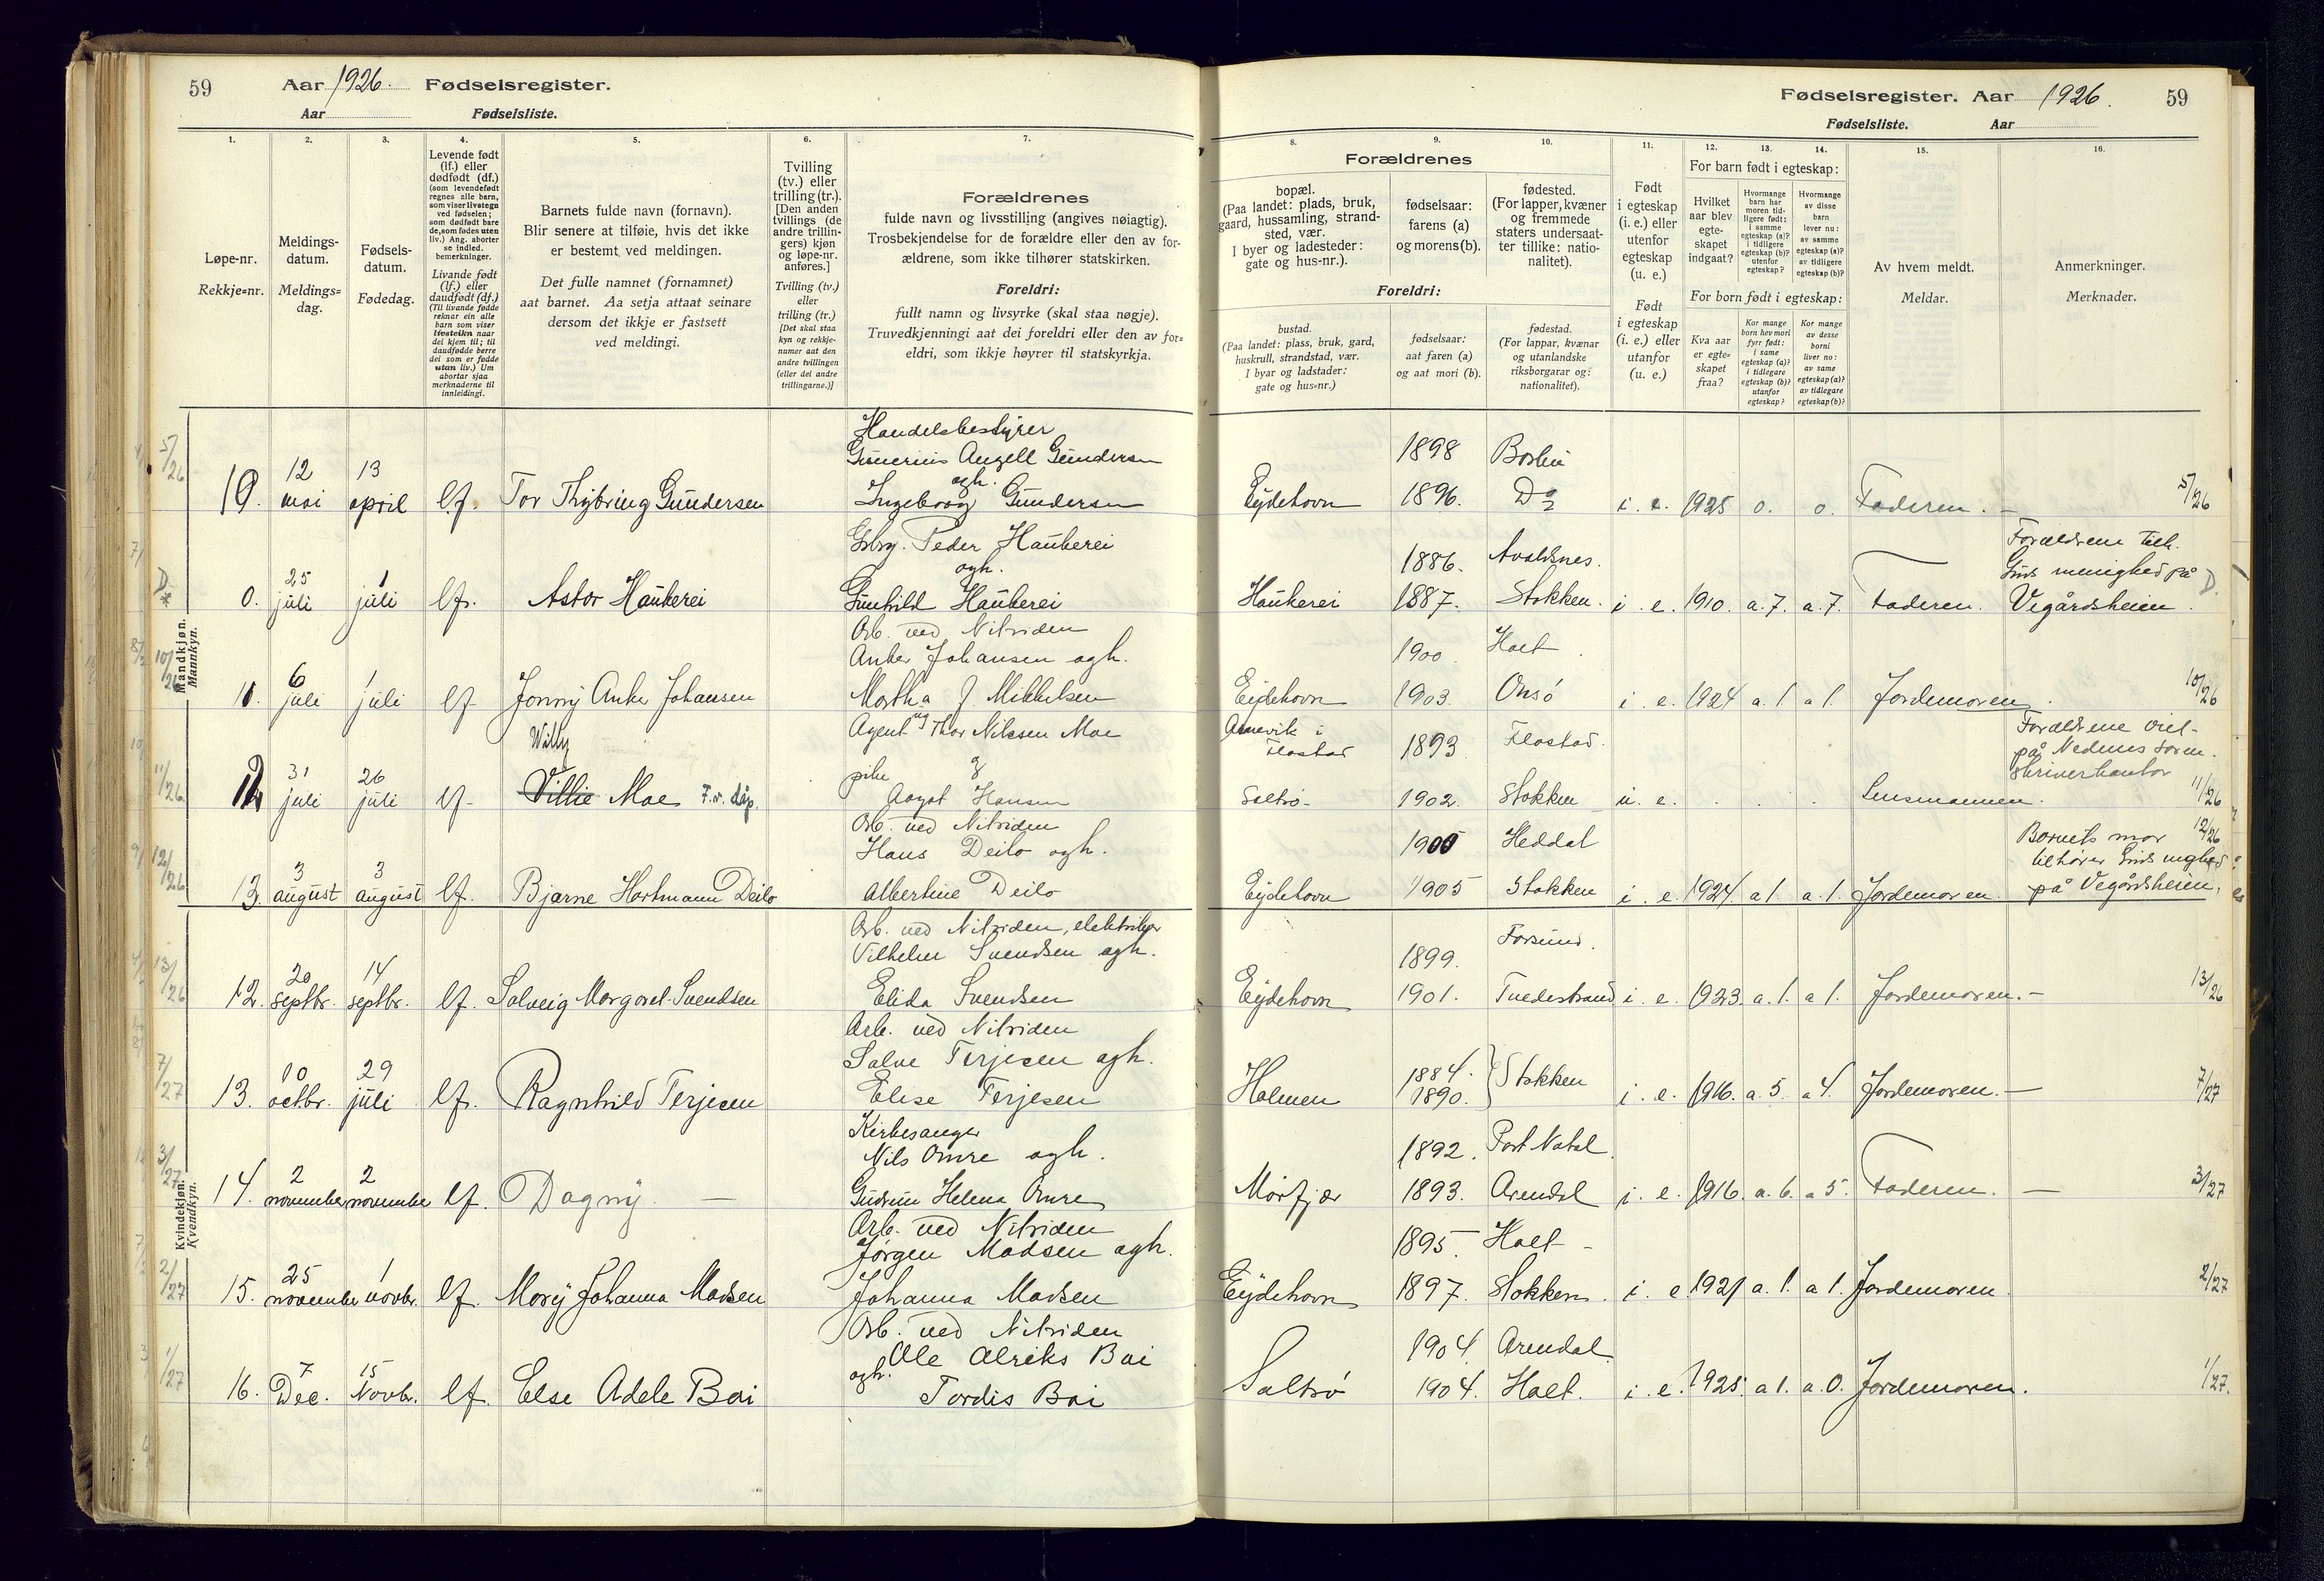 59 Aar 1926. Fødselsregister.
Aar Fødselsliste.
Fødselsregister. Aar 1926. 59
Fødselsliste. Aar
1. 2. 3. 4. 5. 6. 7.
8. 9. 10. 11. 12. 13. 14. 15. 16.
Løpe-nr.
Rekkje=nr.
Meldings-
datum.
Meldings=
dag.
Fødsels-
datum.
Fødedag.
Levende født
(lf.) eller
dødfødt (df.)
(som levendefødt
regnes alle barn,
som viser livstegn
ved fødselen;
som dødfødt bare
de, som fødes uten
liv.) Ang. aborter
se indled.
bemerkninger.
Livande født
(lf.) eller
daudfødt (df.)
(Til livande fødde
reknar ein alle
barn som viser
livsteikn naar
dei kjem til; til
daudfødde berre
dei som er fødde
utan liv.) Um
abortar sjaa
merknaderne til
innleidingi.
Barnets fulde navn (fornavn).
Blir senere at tilføie, hvis det ikke
er bestemt ved meldingen.
Det fulle namnet (fornamnet)
aat barnet. Aa setja attaat seinare
dersom det ikkje er fastsett
ved meldingi.
Tvilling
(tv.) eller
trilling (tr.).
[Den anden
tvillings (de
andre trillin-
gers) kjøn
og løpe-nr.
anføres.]
Tvilling (tv.)
eller
trilling (tr.)
[Det skal staa
kyn og rekkje-
numer aat den
andre tvillingen
(eller dei andre
trillingarne.)]
Forældrenes
fulde navn og livsstilling (angives nøiagtig).
Trosbekjendelse for de forældre eller den av for-
ældrene, som ikke tilhører statskirken.
Foreldri:
fullt namn og livsyrke (skal staa nøgje).
Truvedkjenningi aat dei foreldri eller den av for=
eldri, som ikkje høyrer til statskyrkja.
Forældrenes
bopæl.
(Paa landet: plads, bruk,
gaard, hussamling, strand-
sted, vær.
I byer og ladesteder:
gate og hus-nr.).
fødselsaar:
faren (a)
og morens (b).
fødested.
(For lapper, kvæner
og fremmede
staters undersaat-
ter tillike: natio-
nalitet).
Foreldri:
bustad.
(Paa landet: plass, bruk, gard,
huskrull, strandstad, vær.
I byar og ladstader:
gate og hus=nr.)
fødselsaar:
aat faren (a)
og aat mori (b).
fødestad.
(For lappar, kvænar
og utanlandske
riksborgarar og:
nationalitet).
Født
i egteskap
(i. e.) eller
utenfor
egteskap
(u. e.)
Født
i egteskap
(i. e.) eller
utanfor
(u. e.)
For barn født i egteskap:
Hvilket
aar blev
egte-
skapet
indgaat?
Hvormange
barn har
moren tid-
ligere født:
i samme
egteskap (a)?
i tidligere
egteskap (b)?
utenfor
egteskap?
Hvormange
av disse
barn
lever nu:
av samme
egteskap (a)?
av tidligere
egteskap (b)?
For born født i egteskap:
Kva aar
er egte=
skapet
fraa?
Kor mange
born hev mori
fyrr født:
i same
egteskap (a)?
i tidlegare
egteskap (b)?
utanfor
egteskap?
Kor mange
av desse
borni
liver no:
av same
egteskap (a)?
av tidlegare
egteskap (b)?
Av hvem meldt.
Meldar.
Anmerkninger.
Merknader.
Mandkjøn.
Mannkyn.
5/26
Handelsbestyrer
Gunerius Angell Gundersen
ogh.
10. 12 mai 13 april lf. Tor Thybring Gundersen Ingeborg Gundersen
Eydehavn 1898 1896. Do i. e. 1925 o. o. Faderen. — 5/26
Gbr. Peder Haukerei
ogh.
0. 25 juli 1 juli lf. Astor Haukerei Gunhild Haukerei
Haukerei 1886. Avaldsnes. 1887. Stokken. i. e. 1910. a. 7. a. 7. Faderen.
Forældrene tilh.
Guds menighed på
Vegårdsheien. D.
10/26
Arb. ved Nitriden
Anker Johansen ogh.
11. 6 juli 1 juli lf Jonny Anker Johansen Martha J. Mikkelsen
Eydehavn 1900. Holt. 1903. Onsö i. e. 1924 a. 1. a 1. Jordemoren. 10/26
11/26
Agent Thor Nilssen Moe
og
12 31 juli 26 juli lf. Willy Villie Moe F.v. dåp. pike Aagot Hansen
Arnevik i Flostad 1893 Flostad.
Saltrö 1902. Stokken u. e. . . . Lensmannen.
Forældrene viet
på Nedenes soren-
skriverkontor 11/26
12/26
Arb. ved Nitriden
Hans Deilo ogh.
13. 3 august 3 august lf. Bjarne Hartmann Deilo Albertine Deilo
Eydehavn 1900 Heddal 1905 Stokken i. e. 1924. a 1. a. 1. Jordemoren.
Barnets mor 12/26
tilhører Guds mghed
på Vegårdsheien.
Kvindekjøn.
Kvendkyn.
13/26
Arb. ved Nitriden, elektriker
Vilhelm Svendsen ogh.
12. 20 septbr. 14 septbr. lf. Solveig Margaret Svendsen Elida Svendsen
Eydehavn 1899. 1901. Tvedestrand i. e. 1923. a. 1. a 1. Jordemoren. — 13/26
7/27
Arb. ved Nitriden
Salve Terjesen ogh.
13. 10 octbr. 29 juli lf. Ragnhild Terjesen Elise Terjesen
Holmen 1884. 1890. Stokken i. e. 1916. a. 5. a 4. Jordemoren. — 7/27
3/27
Kirkesanger
Nils Omre ogh.
14. 2 november 2 november lf. Dagny — Gudrun Helena Omre
Mörfjær 1892. Port Natal. 1893. Arendal i. e. 1916. a. 6. a 5. Faderen. — 3/27
2/27
Arb. ved Nitriden
Jörgen Madsen ogh.
15. 25 november 1 novbr. lf. Mary Johanna Madsen Johanna Madsen
Eydehavn 1895. Holt 1897. Stokken. i. e. 1921 a. 1. a 1. Jordemoren. 2/27
1/27
Arb. ved Nitriden
Ole Alriks Boi
ogh.
16. 7 Dec. 15 Novb. lf. Else Adele Boi Tordis Boi
Saltrö 1904. Arendal. 1904. Holt. i. e. 1925. a 1. a. 0. Jordemoren. 1/27.